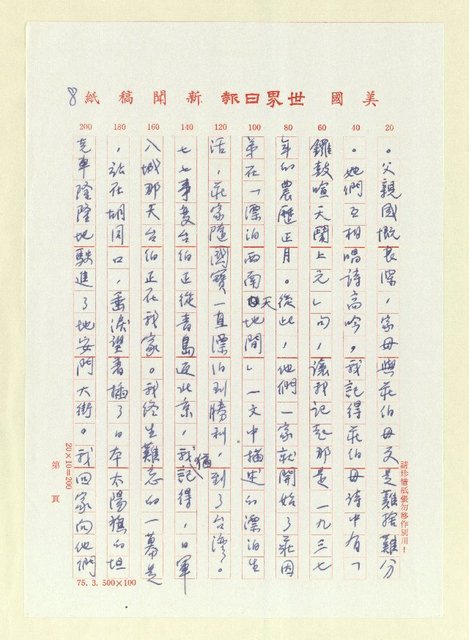 8
美國世界日報新聞稿紙
20 40 60 80 100 120 140 160 180 200
。父親感慨甚深,家母與莊伯母又是難捨難分
。她們互相唱詩高吟,我記得莊伯母詩中有「
鑼鼓喧天鬧上元」句,讓我記起那是一九三七
年的農曆正月。從此,他們一家就開始了莊因
弟在「漂泊西南天地間」一文中描述的漂泊生
活,莊家隨國寶一直漂泊到勝利,到了台灣。
七七事變台伯正從青島返北京,我猶記得,日軍
入城那天台伯正在我家。我終生難忘的一幕是
,站在胡同口,垂淚望著插了日本太陽旗的坦
克車隆隆地駛進了地安門大街。我回家向他們
請珍惜紙張勿移作別用!
20×10=200
第 頁
75.3.500×100